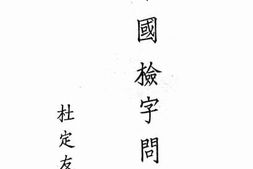 國檢字問
杜定友